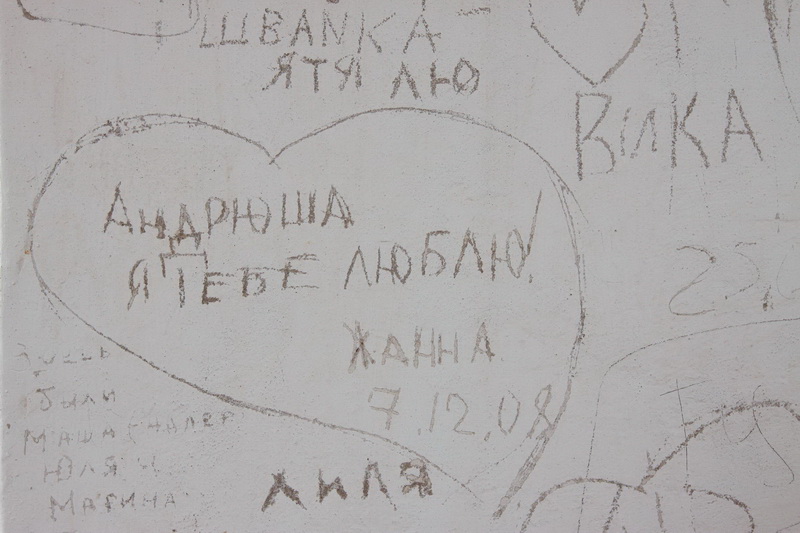 ШВАЙКА
ЯТЯ ЛЮ
ВІКА
АНДРЮША
Я ТЕБЕ ЛЮБЛЮ!
ЖАННА
7.12.08
25.
были
МАША
ЮЛЯ
МАРИНА
ЛИЛЯ